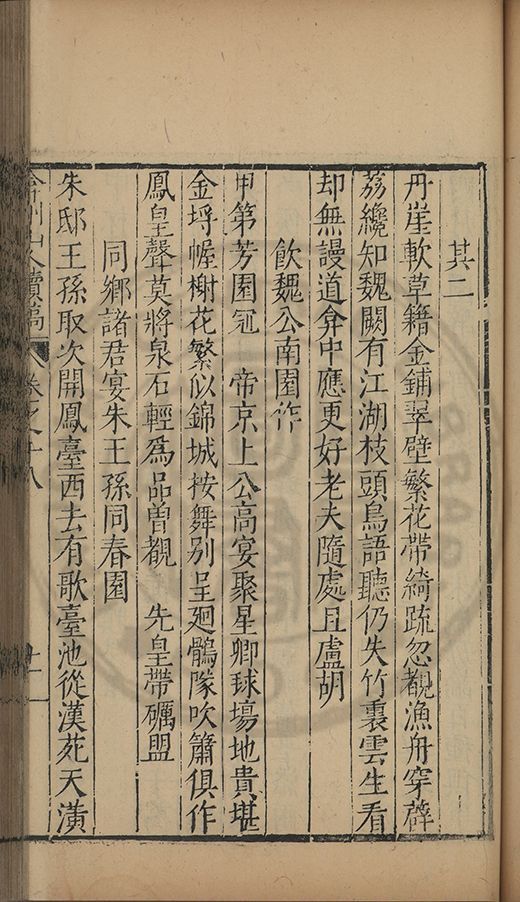 其二
丹崖軟草籍金鋪翠壁繁花帶綺疏忽覩漁舟穿薜
荔纔知魏闕有江湖枝頭鳥語聽仍失竹裏雲生看
却無謾道弇中應更好老夫隨處且盧胡
飲魏公南園作
甲第芳園冠　帝京上公高宴聚星卿球場地貴堪
金埒幄榭花繁似錦城按舞別呈廻鶻隊吹簫俱作
鳳皇聲莫將泉石輕爲品曾覩　先皇帶礪盟
同鄉諸君宴朱王孫同春園
朱邸王孫取次開鳳臺西去有歌臺池從漢苑天潢
弇州山人續稿　卷之十八　十一